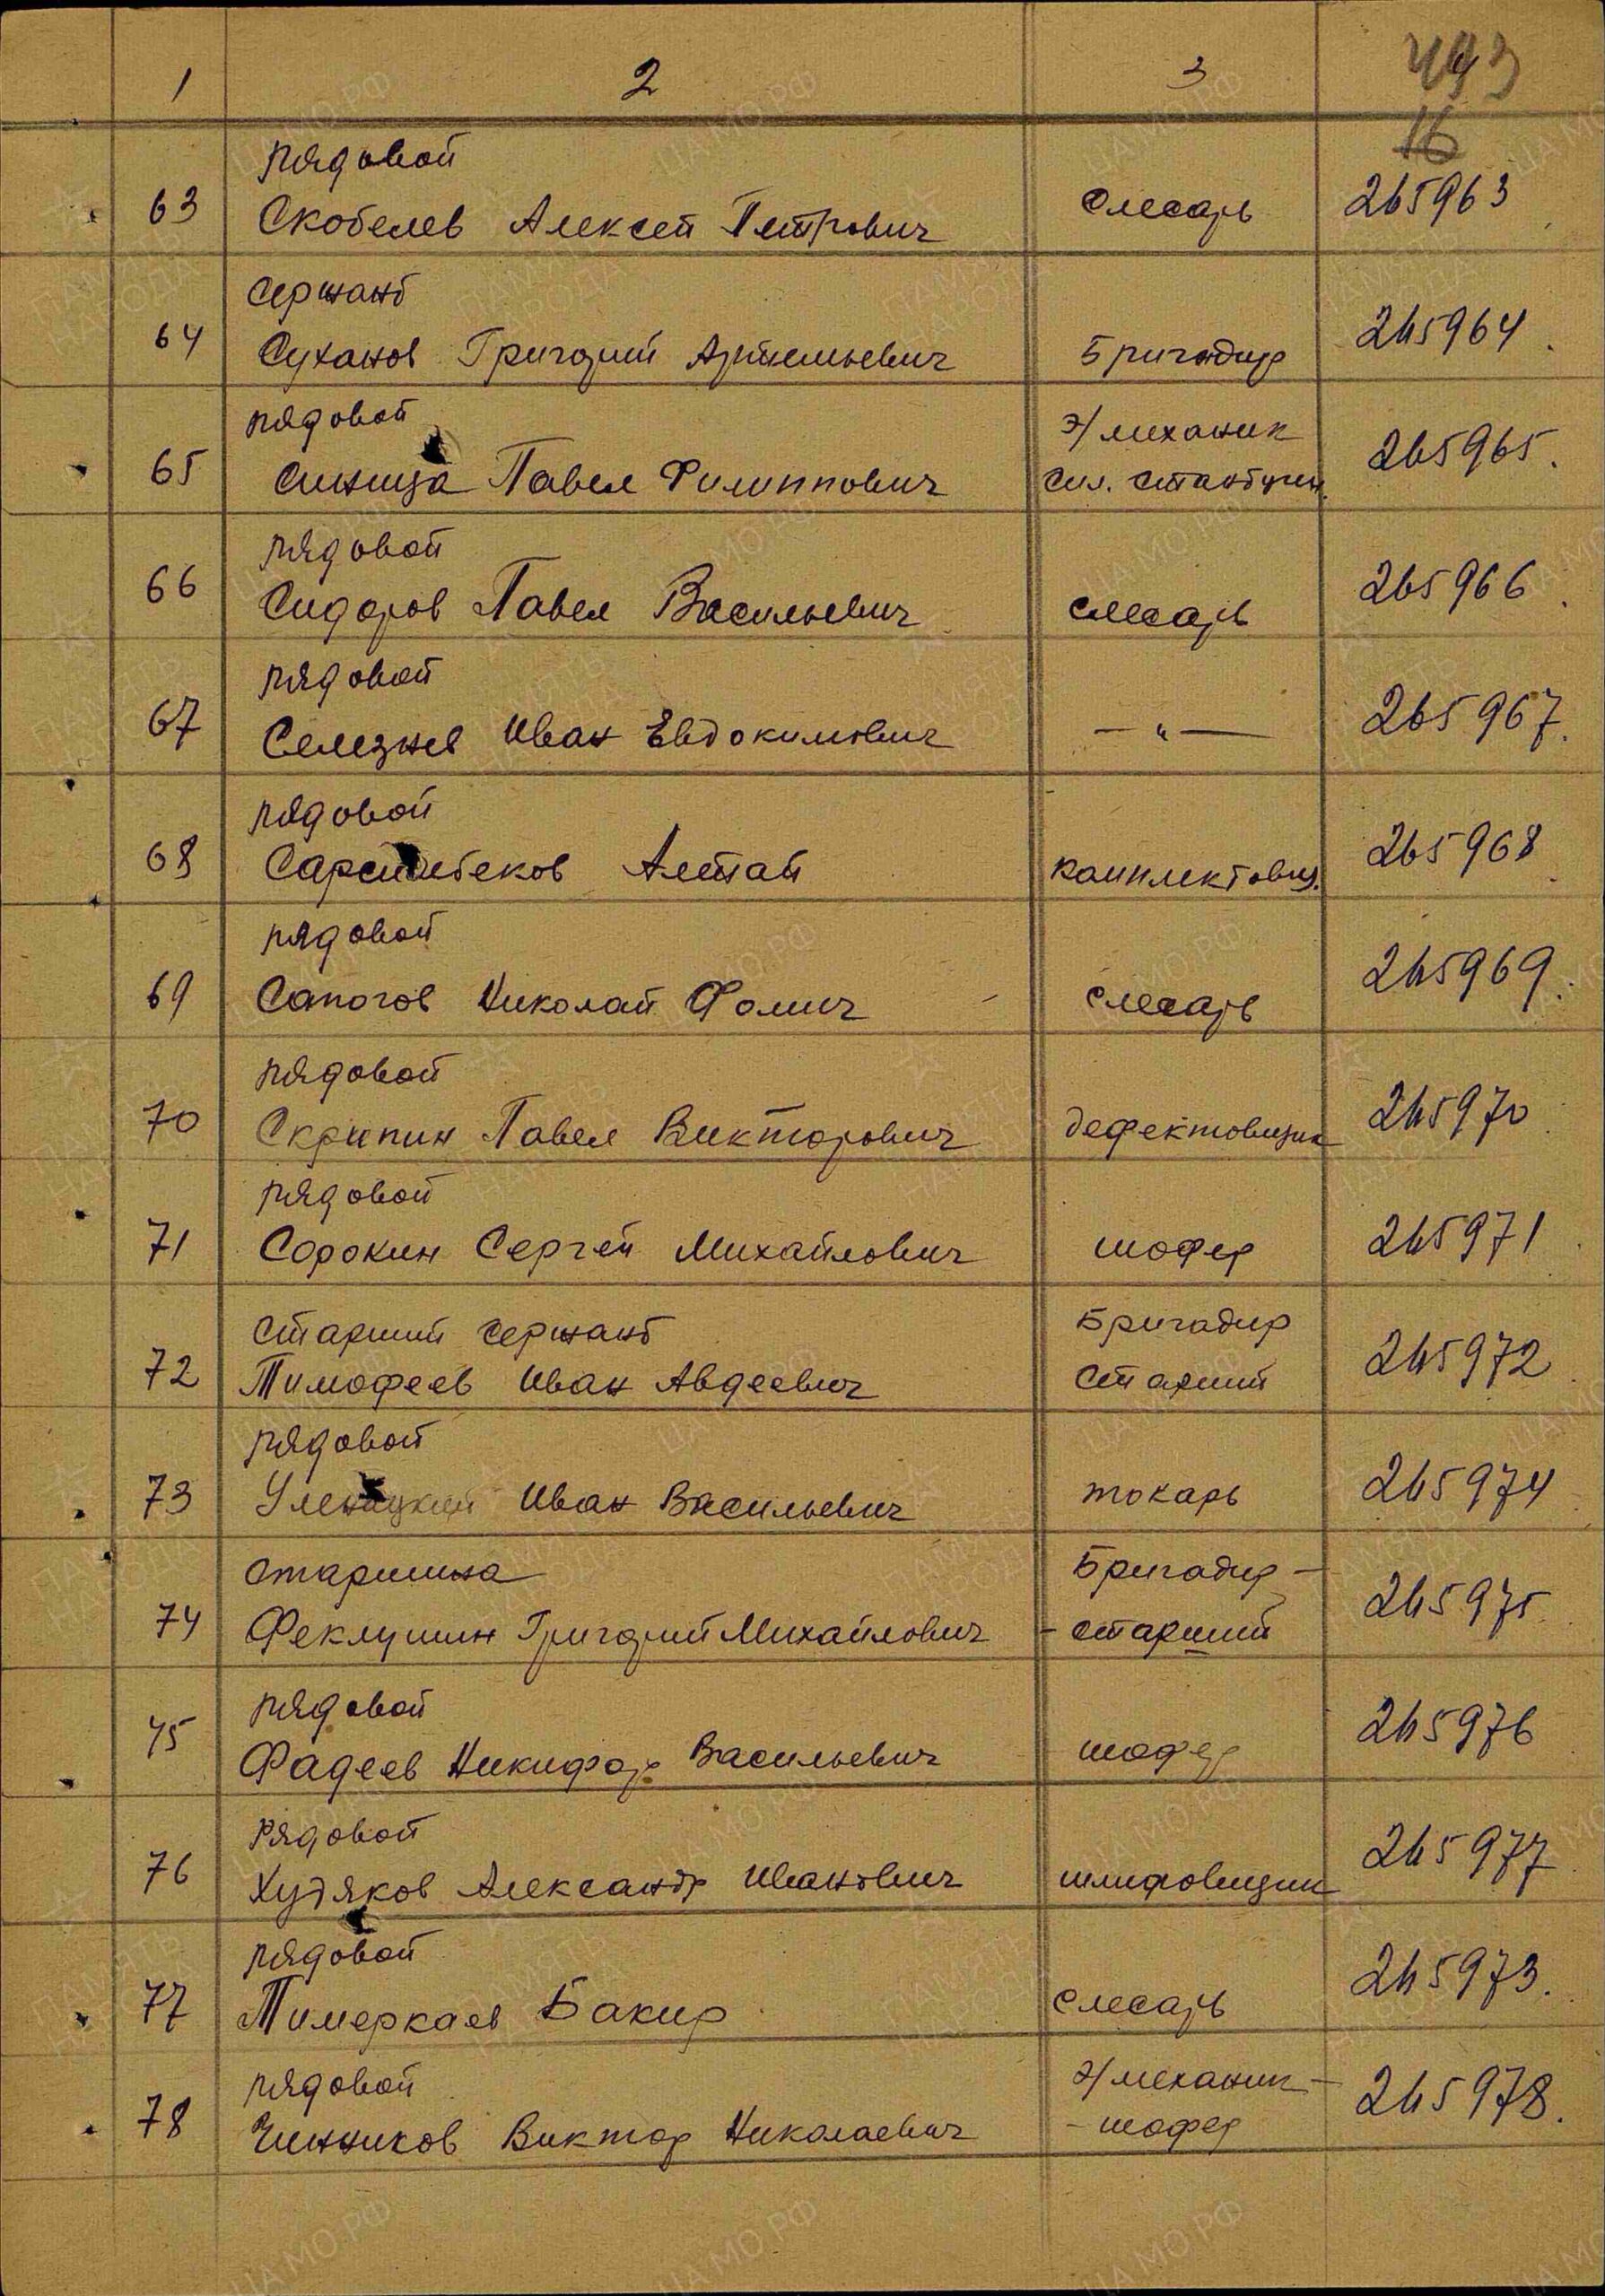 1 2 3 4
493
16
рядовой
63 Скобелев Алексей Петрович слесарь 265963
сержант
64 Суханов Григорий Артемьевич Бригадир 265964
рядовой э/механик
65 Синица Павел Филиппович сил. 265965.
рядовой
66 Сидоров Павел Васильевич слесарь 265966
рядовой
67 Селезнев Иван Евдокимович — " — 265967.
рядовой
68 Алтай комплектовщ. 265968
рядовой
69 Сапогов Николай Фомич слесарь 265969.
рядовой
70 Скрипин Павел Викторович дефектовщик 265970
рядовой
71 Сорокин Сергей Михайлович шофер 265971
старший сержант Бригадир
72 Тимофеев Иван Авдеевич старший 265972
рядовой
73 Иван Васильевич токарь 265974
старшина Бригадир -
74 Феклушин Григорий Михайлович - старший 265975
рядовой
75 Фадеев Никифор Васильевич шофер 265976
Рядовой
76 Худяков Александр Иванович шлифовщик 265977
рядовой
77 Тимеркаев Бакир слесарь 265973.
рядовой э/механик -
78 Чинников Виктор Николаевич - шофер 265978.
ЦА МО РФ
ПАМЯТЬ НАРОДА